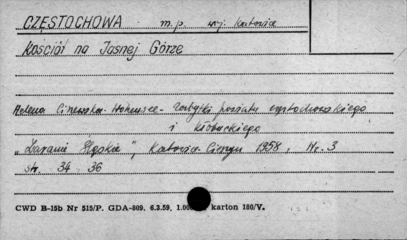 CZĘSTOCHOWA m.p. woj. Katowice
Kościół na Jasnej Górze
Helena - Zabytki powiatu częstochowskiego
i kłobuckiego
„Zarania Śląskie", Katowice-Cieszyn 1958, Nr. 3
str. 34 - 36
CWD B-15b Nr 515/P. GDA-809. 6.3.59. 1.00 karton 180/V.